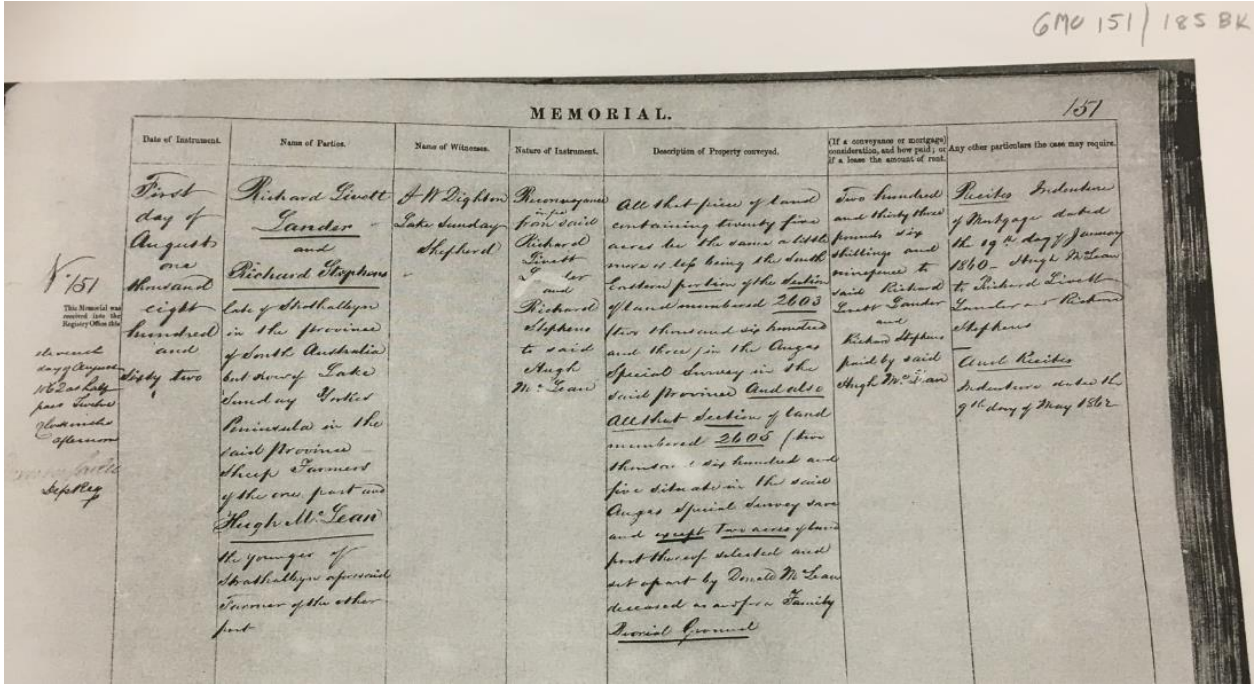 GMO 151/185 BK
MEMORIAL.
151
Date of Instrument.
Name of Parties.
Name of Witnesses.
Nature of Instrument.
Description of Property conveyed.
(If a conveyance or mortgage)
consideration, and how paid; or
if a lease the amount of rent.
Any other particulars the case may require.
No 151
This Memorial was
received into the
Registry Office this
eleventh
day of August
1862 at half
past Twelve
o'clock in the
afternoon
Dep Reg
First
day of
August
one
thousand
eight
hundred
and
Sixty two
Richard Livett
Lander
and
Richard Stephens
late of Strathalbyn
in the province
of South Australia
but now of Lake
Sunday Yorkes
Peninsula in the
said Province
Sheep Farmers
of the one part and
Hugh McLean
the younger of
Strathalbyn aforesaid
Farmer of the other
part
A W Dighton
Lake Sunday
Shepherd
Reconveyance
from said
Richard
Livett
Lander
and
Richard
Stephens
to said
Hugh
McLean
All that piece of land
containing twenty five
acres be the same a little
more or less being the South
Eastern portion of the section
of land numbered 2603
(two thousand six hundred
and three) in the Angas
Special Survey in the
said Province And also
All that Section of land
numbered 2605 (two
thousand six hundred and
five situate in the said
Angas Special Survey save
and except two acres of land
part thereof selected and
set apart by Donald McLean
deceased as and for a Family
Burial Ground
Two hundred
and thirty three
pounds six
shillings and
ninepence to
said Richard
Livett Lander
and
Richard Stephens
paid by said
Hugh McLean
Recites Indenture
of Mortgage dated
the 19th day of January
1860 - Hugh McLean
to Richard Livett
Lander and Richard
Stephens
And Recites
Indenture dated the
9th day of May 1862